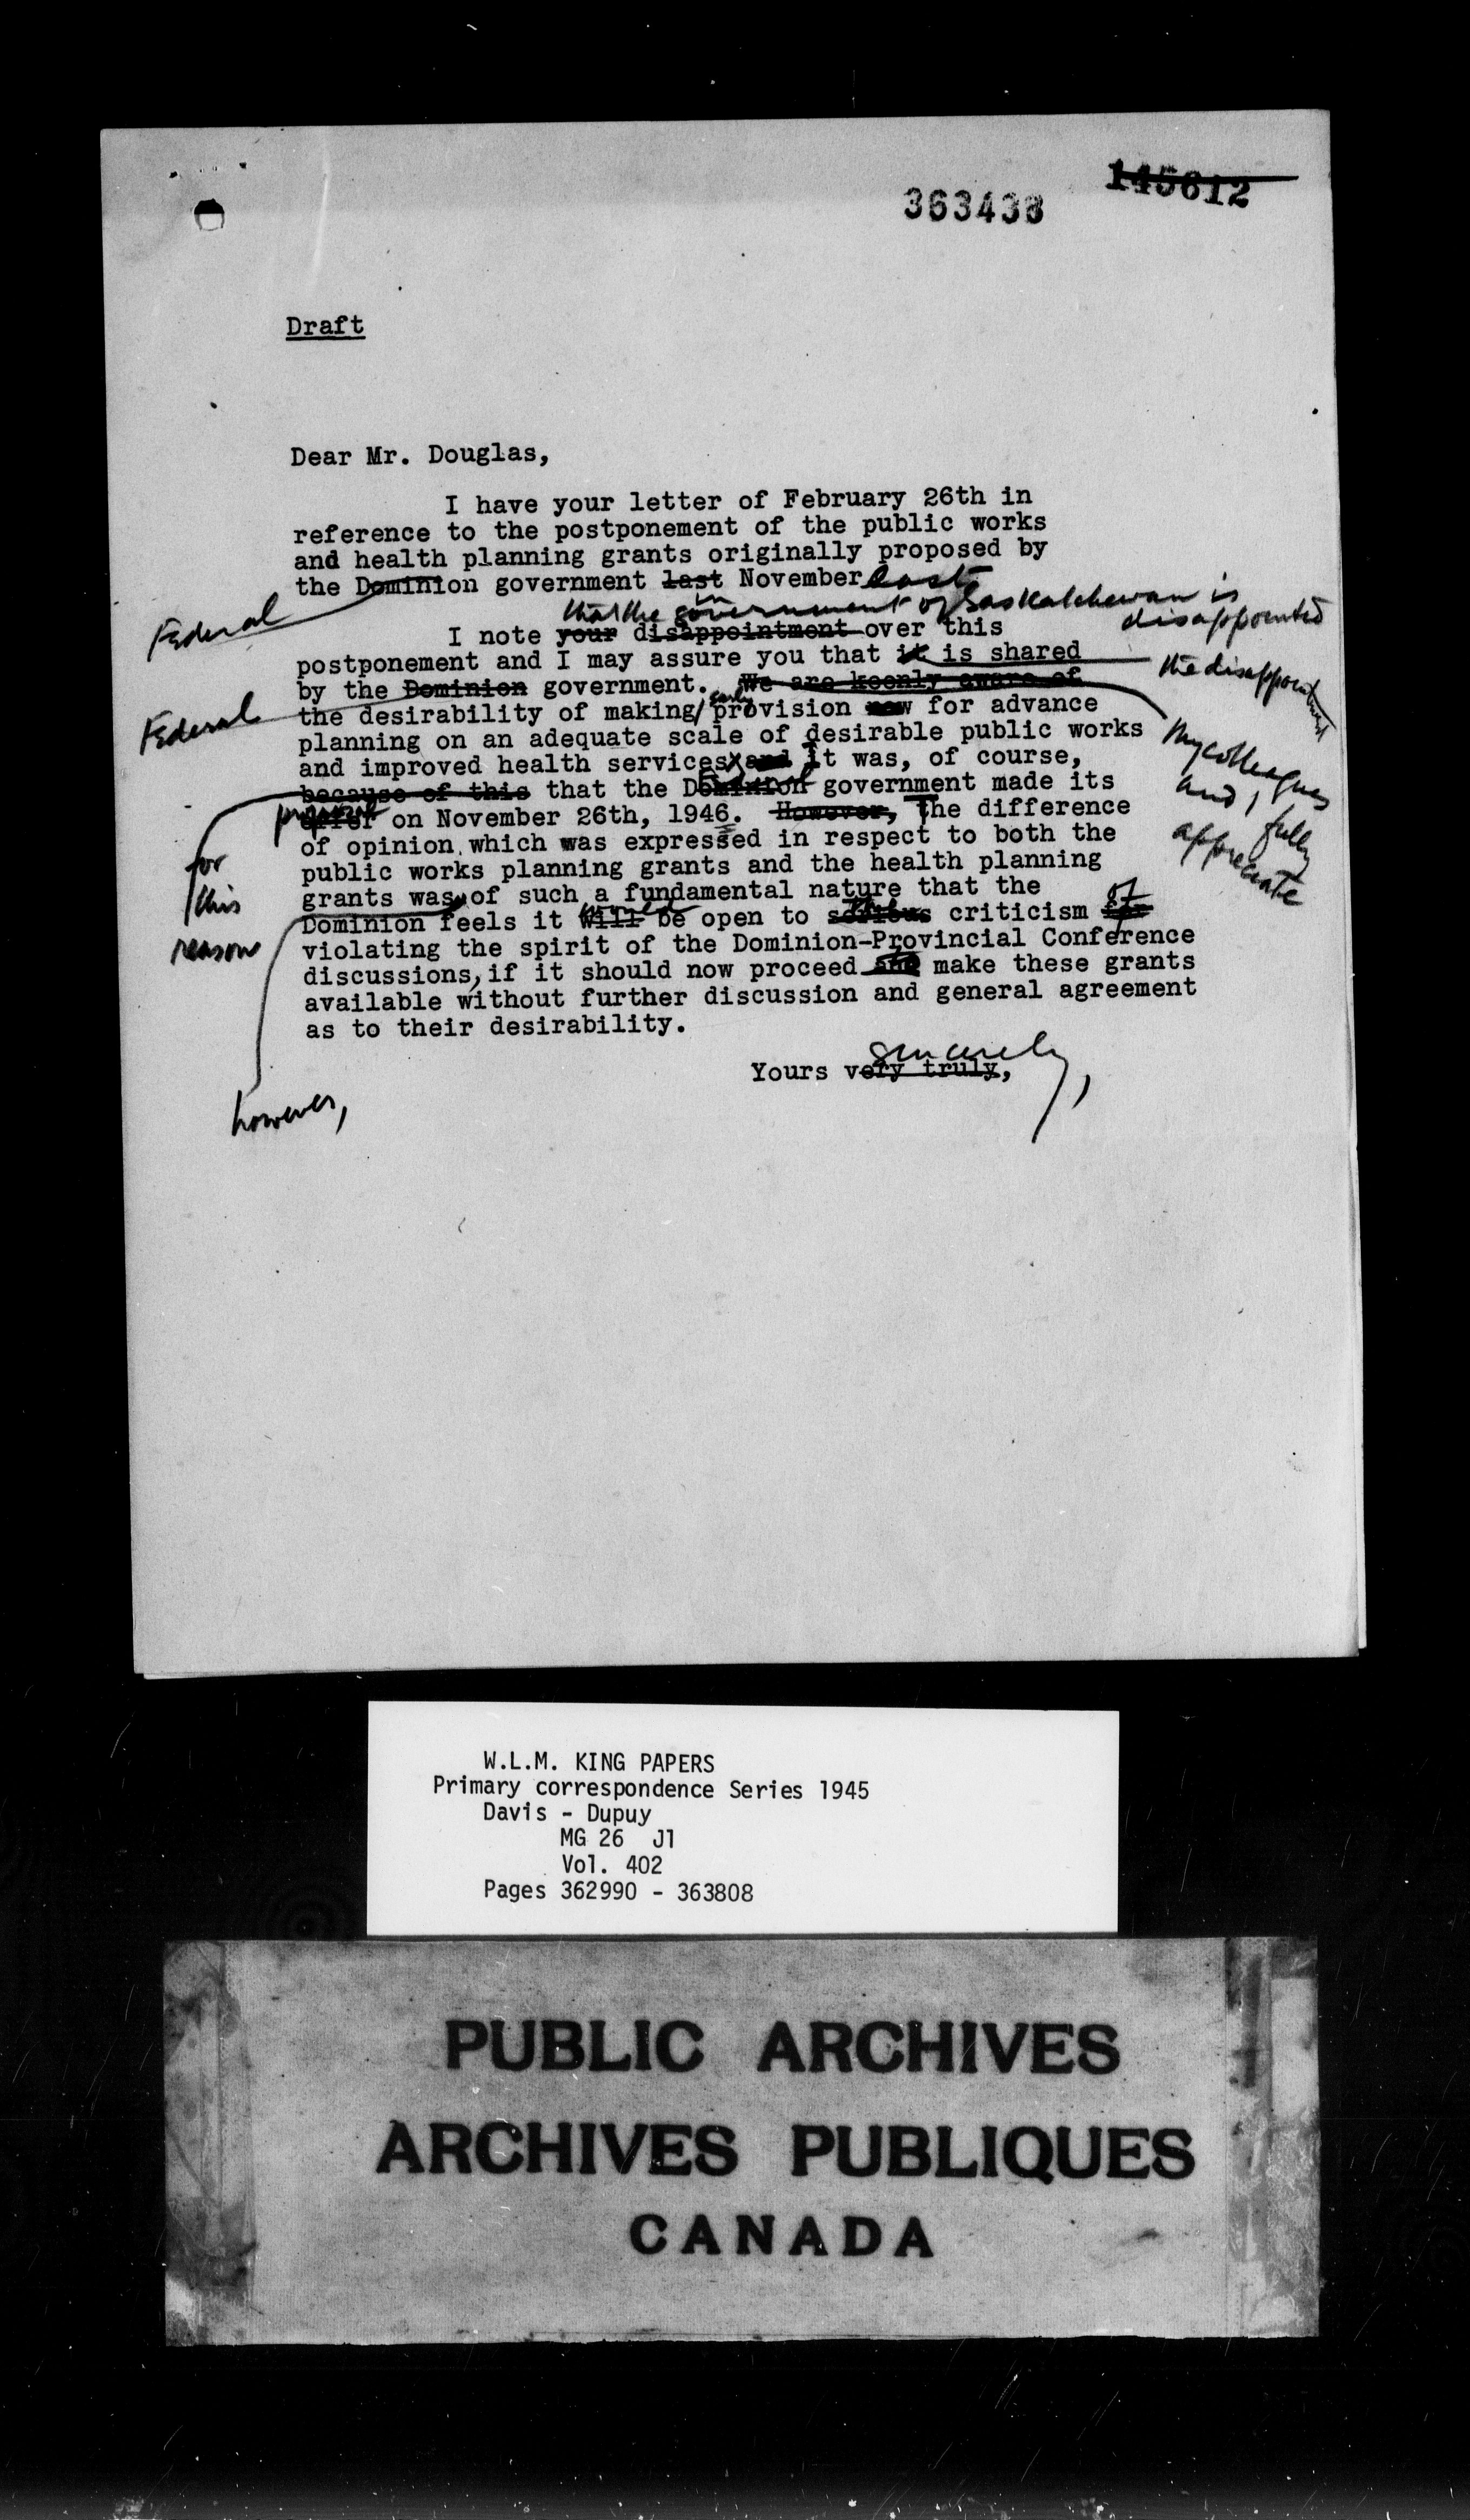 363438
145612
Draft
Dear Mr. Douglas,
I have your letter of February 26th in
reference to the postponement of the public works
and health planning grants originally proposed by
the Dominion government last November last.
Federal
that the government of Saskatchewan is
disappointed
I note your disappointment over this
postponement and I may assure you that it is shared
the disappointment
by the Dominion government. We are keenly aware of
Federal
early
the desirability of making provision now for advance
my colleagues
and I fully
appreciate
planning on an adequate scale of desirable public works
and improved health services and It was, of course,
because of this that the Dominion government made its
for
this
reason
offer on November 26th, 1946. However, The difference
of opinion which was expressed in respect to both the
public works planning grants and the health planning
grants was of such a fundamental nature that the
however,
would
the
of
Dominion feels it will be open to serious criticism for
violating the spirit of the Dominion-Provincial Conference
discussions, if it should now proceed and make these grants
to
available without further discussion and general agreement
as to their desirability.
sincerely,
Yours very truly,
W.L.M. KING PAPERS
Primary correspondence Series 1945
Davis - Dupuy
MG 26 J1
Vol. 402
Pages 362990 - 363808
PUBLIC ARCHIVES
ARCHIVES PUBLIQUES
CANADA